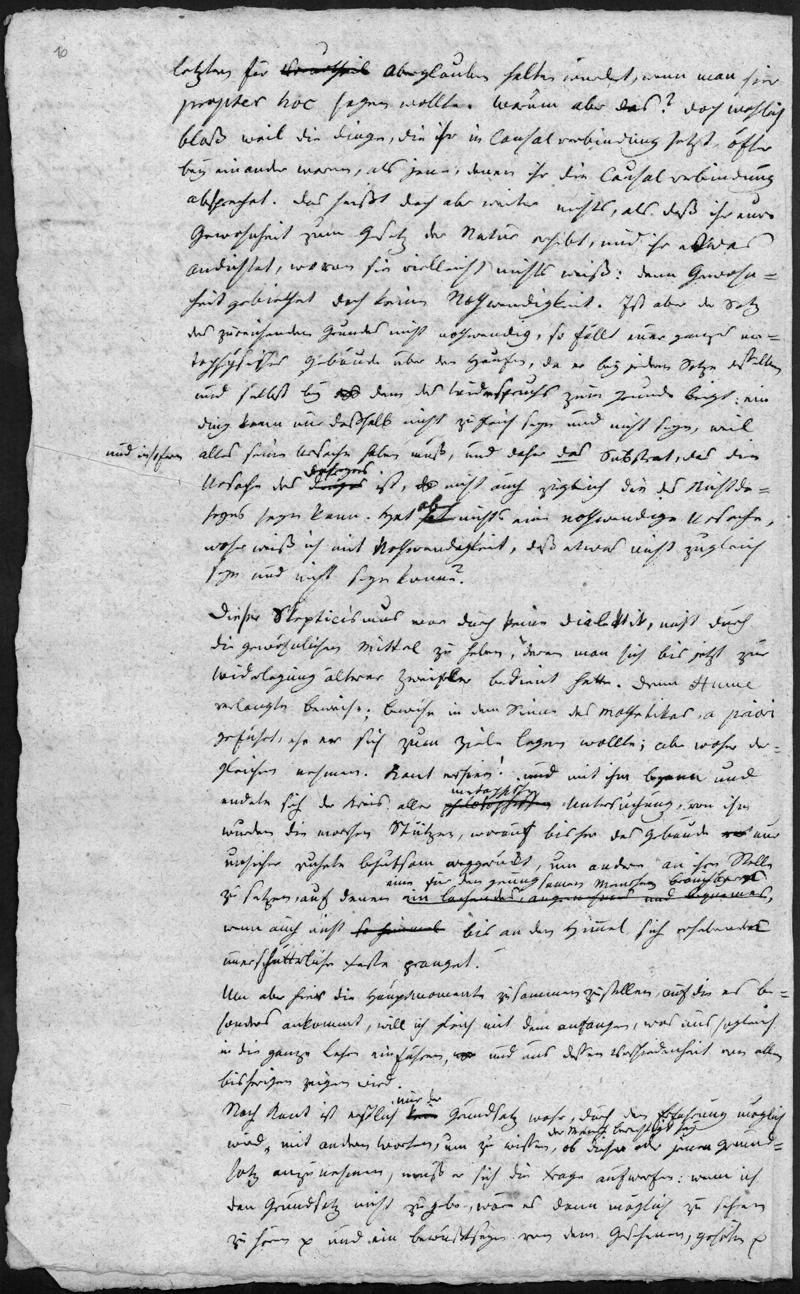 10
letztern für Vorurtheil Aberglauben halten würdet, wenn man hier
propter hoc sagen wollte. Warum aber das? doch wohl
bloß weil die Dinge, die ihr in Causalverbindung setzt, öfter
bey einander waren, als jene, denen ihr die Causalverbindung
absprechet. Das heißt doch aber weiter nichts, als daß ihr eure
Gewohnheit zum Gesetz der Natur erhebt, und ihr etwas
andichtet, wovon sie vielleicht nichts weiß: denn Gewohn=
heit gebiethet doch keine Nothwendigkeit. Ist aber der Satz
des zureichenden Grundes nicht nothwendig, so fällt euer ganzes me=
taphysisches Gebäude über den Haufen, da er bey jedem Satze desselben
und selbst bey dem des Widerspruchs zum Grunde liegt: ein
Ding kann nur deßhalb nicht zugleich seyn und nicht seyn, weil
und in sofern alles seine Ursache haben muß, und daher das Substrat, das die
Ursache des Dinges Daseyns ist, nicht auch zugleich die des Nichtda=
seyns seyn kann. Hat aber nichts eine nothwendige Ursache,
woher weiß ich mit Nothwendigkeit, daß etwas nicht zugleich
seyn und nicht seyn könne?
Dieser Skepticismus war durch keine Dialektik, nicht durch
die gewöhnlichen Mittel zu heben, deren man sich bis jetzt zur
Widerlegung älterer Zweifler bedient hatte. Denn Hume
verlangte Beweise; Beweise in dem Sinne des Mathetikers, a priori
geführt, ehe er sich zum Ziele legen wollte; aber woher der=
gleichen nehmen. Kant erschien! und mit ihm begann und
endete sich der Kreis aller philosophischen metaphysischen Untersuchung, von ihm
wurden die morschen Stützen, worauf bisher das Gebäude nur
unsicher ruhete behutsam weggerückt, um andere an ihre Stelle
zu setzen, auf denen ein lachendes, angenehmes und bequemes, eine für den genügsamen Menschen brauchbare
wenn auch nicht bis an den Himmel sich erhebende
unerschütterliche Feste pranget.
Um aber hier die Hauptmomente zusammenzustellen, auf die es be=
sonders ankommt, will ich gleich mit dem anfangen, was uns sogleich
in die ganze Lehre einführen, und uns dessen Verschiedenheit von allen
bisherigen zeigen wird.
Nach Kant ist nur der Grundsatz wahr, durch den Erfahrung möglich
wird, mit andern Worten, um zu wissen, ob der Mensch berechtigt sey diesen oder jenen Grund=
satz anzunehmen, muß er sich die Frage aufwerfen: wenn ich
den Grundsatz nicht zugebe, wäre es dann möglich zu sehen
zu hören und ein Bewußtseyn von dem Gesehenen, Gehörten